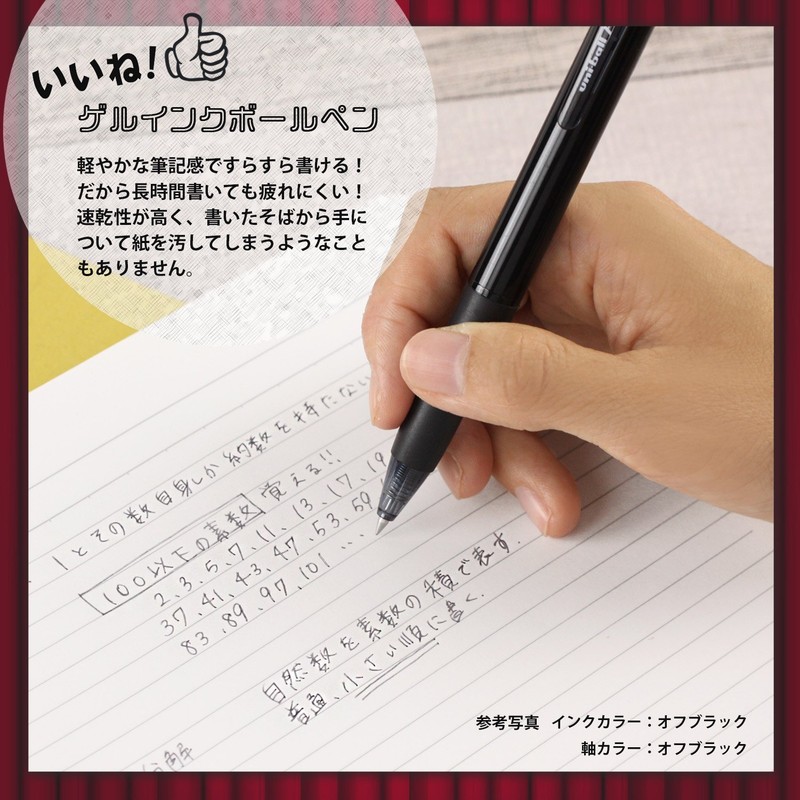 いいね!
ゲルインクボールペン
軽やかな筆記感ですらすら書ける！
だから長時間書いても疲れにくい！
速乾性が高く、書いたそばから手に
ついて紙を汚してしまうようなこと
もありません。
uniball
1とその数自身しか約数を持たない
100以下の素数 覚える!!
2、3、5、7、11、13、17、19
37、41、43、47、53、59
83、89、97、101 ...
自然数を素数の積で表す.
普通、小さい順に書く.
分解
参考写真 インクカラー：オフブラック
軸カラー：オフブラック